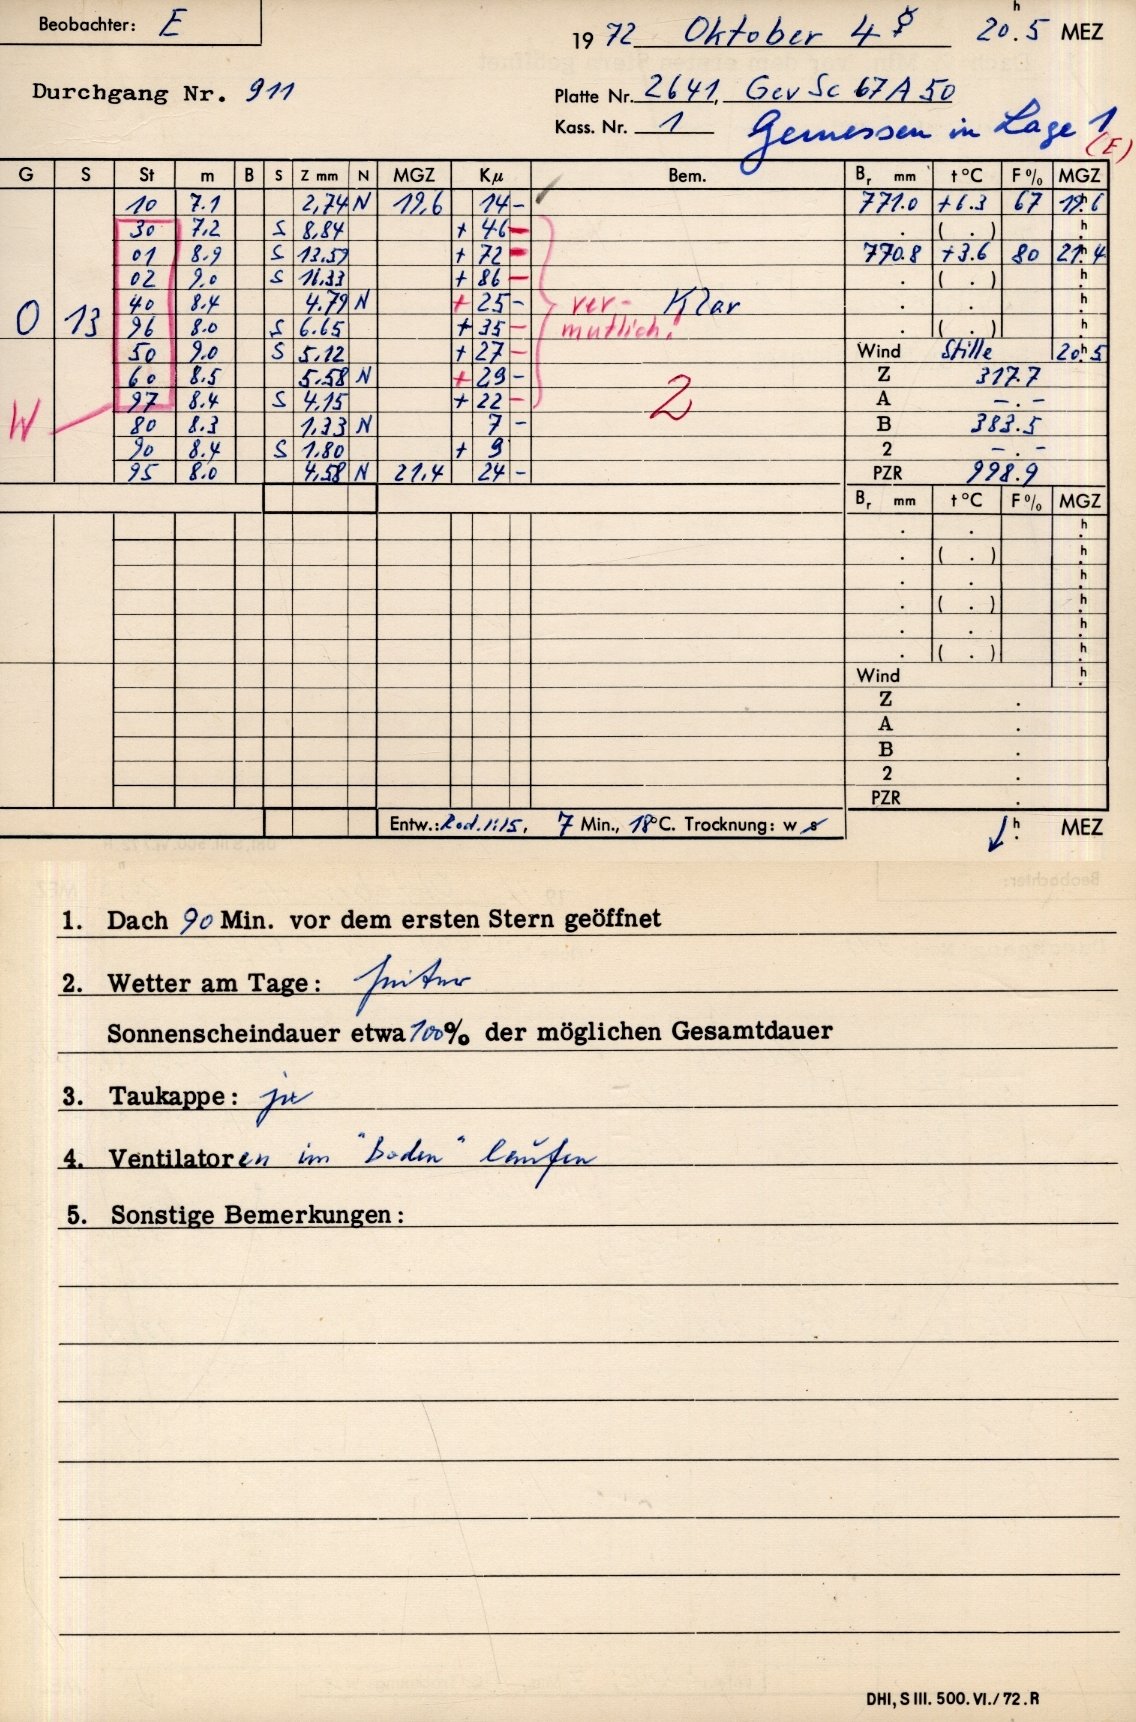 Beobachter: E
1972 Oktober 4 ☿ 20.5 h MEZ
Durchgang Nr. 911
Platte Nr. 2641, Gev Sc 67 A 50
Kass. Nr. 1 Gemessen in Lage 1
(E)
G S St m B S Z mm N MGZ Kμ Bem. Br mm t °C F % MGZ
10 7.1 2,74 N 19,6 14 - 771.0 +6.3 67 19.6 h
30 7.2 S 8,84 + 46 - . ( . ) h
01 8.9 S 13.59 + 72 - 770.8 +3.6 80 21.4 h
02 9.0 S 16.33 + 86 - . ( . ) h
40 8.4 4.79 N + 25 - ver- Klar . . h
0 13 96 8.0 S 6.65 + 35 - mutlich! . ( . ) h
50 9.0 S 5.12 + 27 - Wind Stille 20.5 h
60 8.5 5.58 N + 29 - Z 317.7
97 8.4 S 4.15 + 22 - 2 A -.-
W 80 8.3 1,33 N 7 - B 383.5
90 8.4 S 1.80 + 9 2 -.-
95 8.0 4,58 N 21,4 24 - PZR 998.9
Br mm t °C F % MGZ
. . h
. ( . ) h
. . h
. ( . ) h
. . h
. ( . ) h
Wind h
Z .
A .
B .
2 .
PZR .
Entw.: Rod. 1:15, 7 Min., 18°C. Trocknung: w s h MEZ
1. Dach 90 Min. vor dem ersten Stern geöffnet
2. Wetter am Tage: heiter
Sonnenscheindauer etwa 100% der möglichen Gesamtdauer
3. Taukappe: ja
4. Ventilatoren im "Boden" laufen
5. Sonstige Bemerkungen:
DHI, S III. 500. VI./72. R